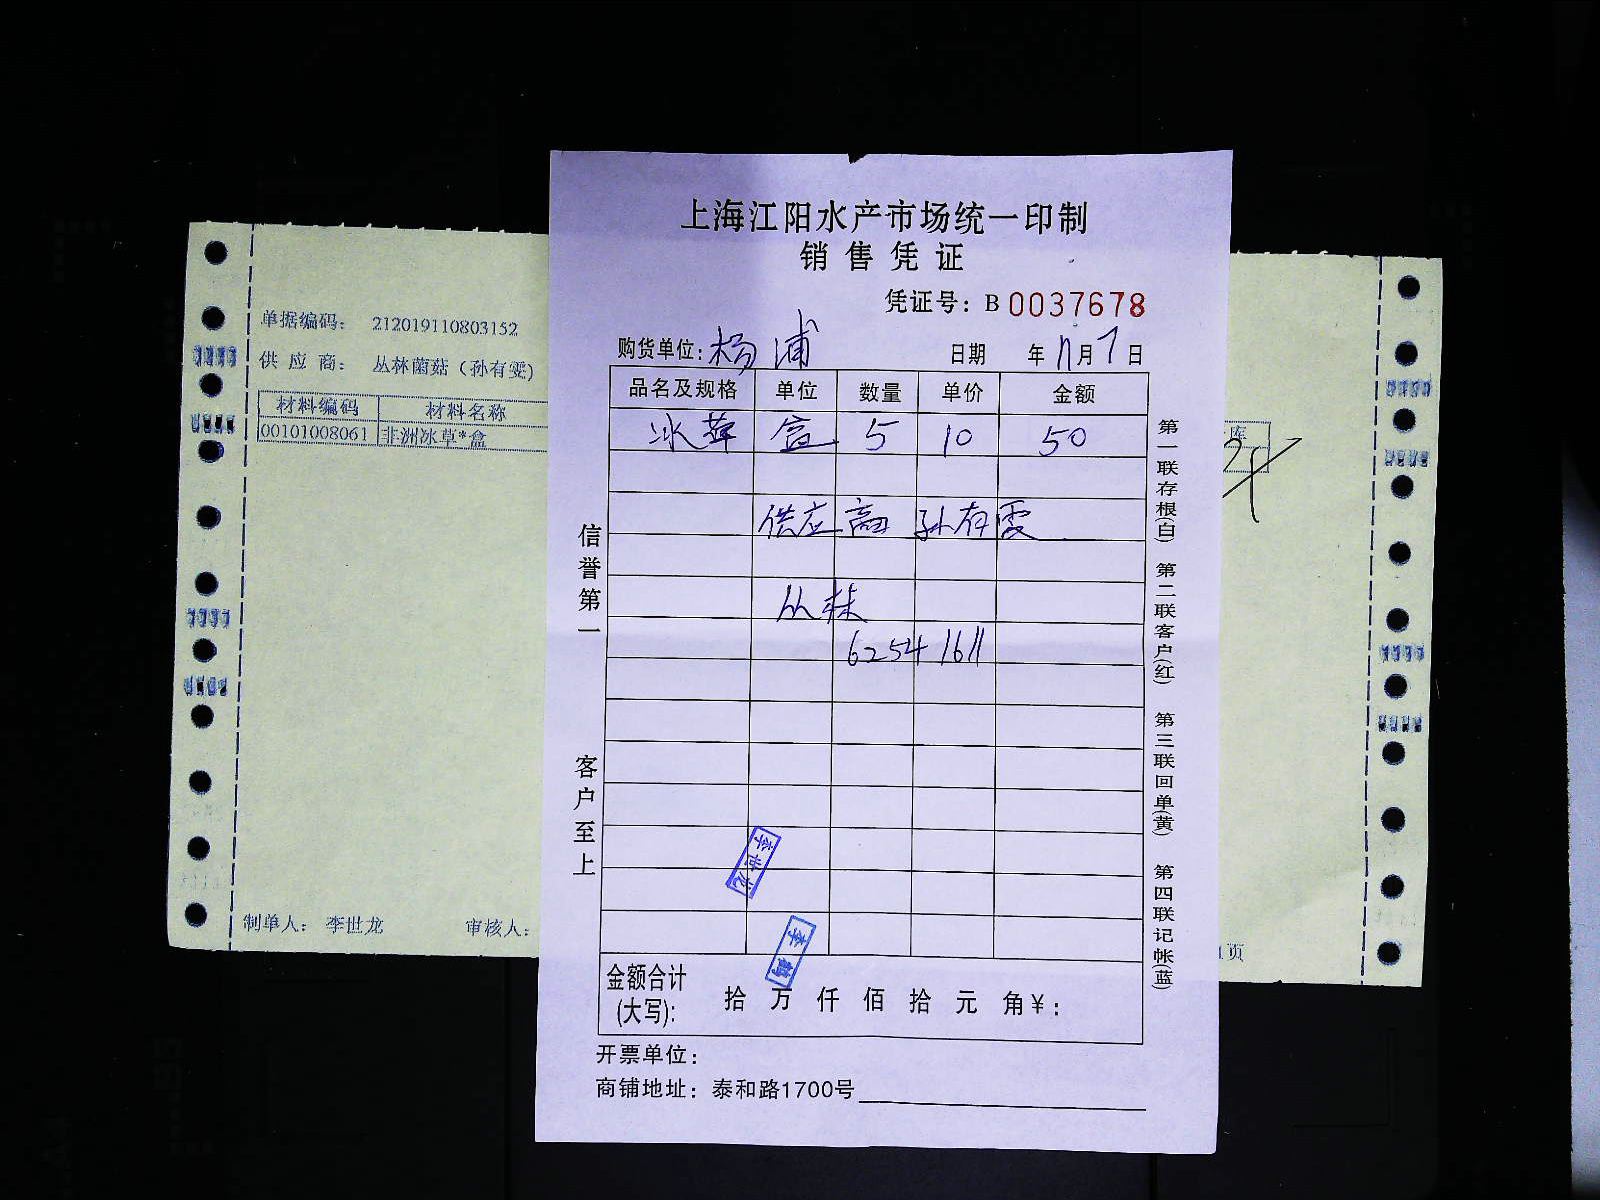 上海江阳水产市场统一印制
销售凭证
凭证号：B 0037678
购货单位：杨浦 日期 年 11月7日
品名及规格 单位 数量 单价 金额
冰草 盒 5 10 50
供应商 孙有雯
丛林
62541611
李世龙
李鹤
金额合计
(大写)： 拾 万 仟 佰 拾 元 角 ¥：
开票单位：
商铺地址：泰和路1700号
信誉第一
客户至上
第一联存根(白) 第二联客户(红) 第三联回单(黄) 第四联记帐(蓝)
单据编码： 212019110803152
供应商： 丛林菌菇（孙有雯）
材料编码 材料名称
00101008061 非洲冰草*盒
制单人： 李世龙 审核人：
库
1页